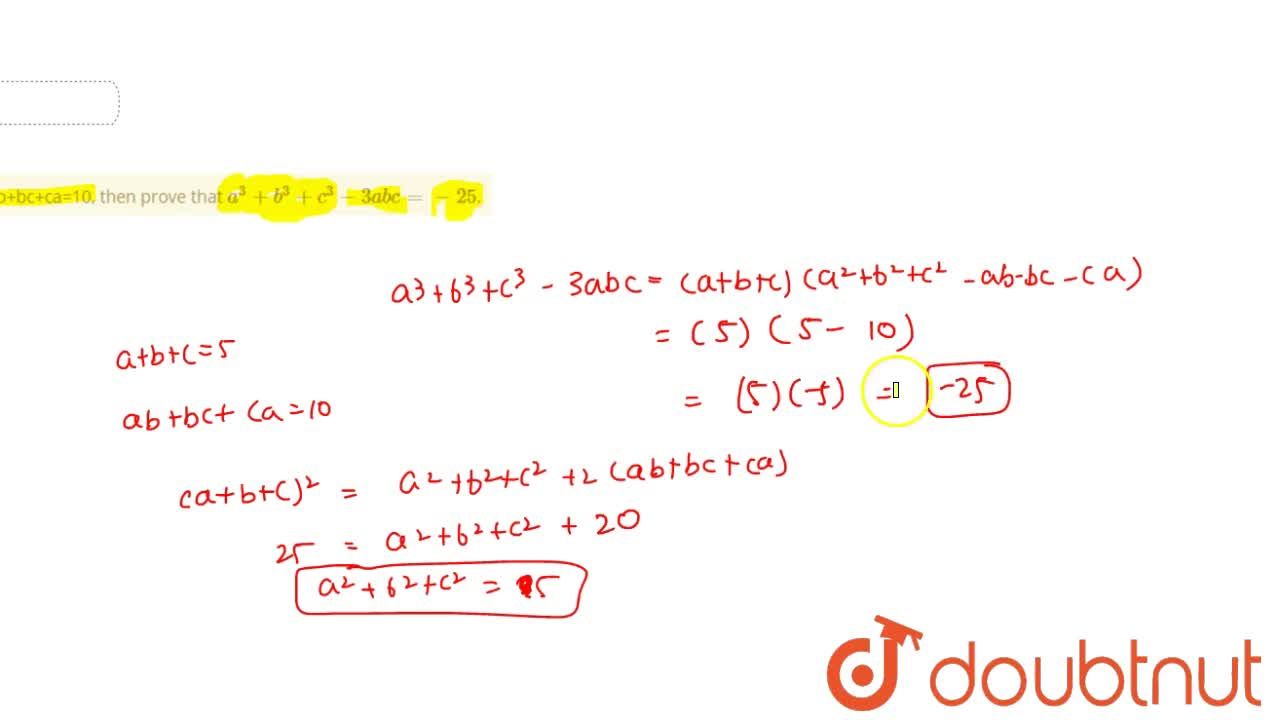 b+bc+ca=10, then prove that a³ + b³ + c³ − 3abc = − 25.
a³+b³+c³ - 3abc = (a+b+c) (a²+b²+c² -ab-bc -ca)
= (5) (5 - 10)
= (5)(-5) = -25
a+b+c=5
ab+bc+ca=10
(a+b+c)² = a²+b²+c² +2(ab+bc+ca)
25 = a²+b²+c² + 20
a²+b²+c² = 5
doubtnut